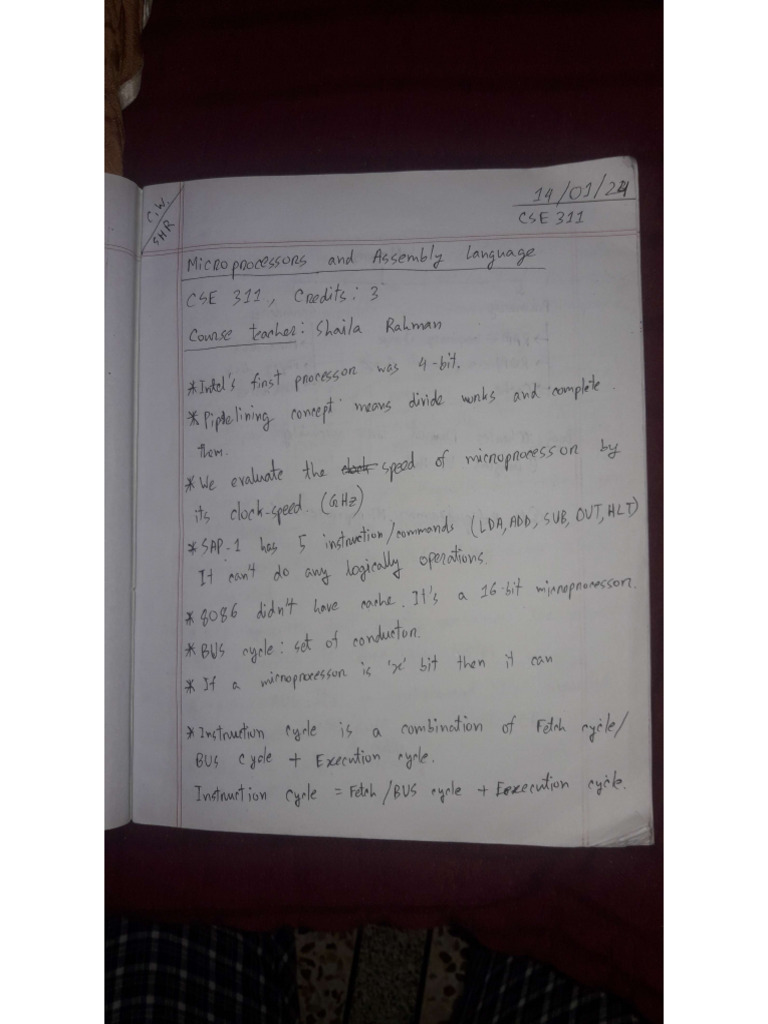 C.W.
SHR
14/01/24
CSE 311
Microprocessors and Assembly Language
CSE 311, Credits: 3
Course teacher: Shaila Rahman
* Intel's first processor was 4-bit.
* Pipelining concept means divide works and complete
them.
* We evaluate the clock speed of microprocessor by
its clock-speed. (GHz)
* SAP-1 has 5 instruction/commands (LDA, ADD, SUB, OUT, HLT)
It can't do any logically operations.
* 8086 didn't have cache. It's a 16-bit microprocessor.
* BUS cycle: set of conductor.
* If a microprocessor is 'x' bit then it can
* Instruction cycle is a combination of Fetch cycle/
BUS cycle + Execution cycle.
Instruction cycle = Fetch/BUS cycle + Execution cycle.